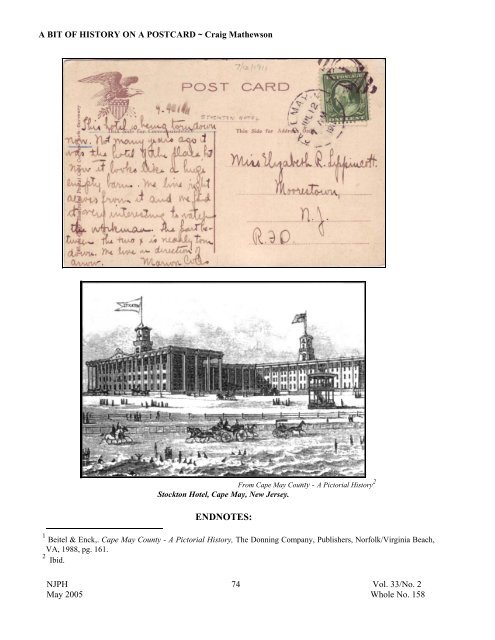 A BIT OF HISTORY ON A POSTCARD ~ Craig Mathewson
7/12/1911
POST CARD
STOCKTON HOTEL
This Side for Address
This hotel is being torn down
now. Not many years ago it
was the hotel of the place but
now it looks like a huge
empty barn. We live right
across from it and we find
it very interesting to watch
the workman. The part be-
tween the two x is nearly torn
down. We live in direction of
arrow. Marion
Miss Elizabeth R. Lippincott.
Moorestown,
N. J.
R.F.D.
From Cape May County - A Pictorial History2
Stockton Hotel, Cape May, New Jersey.
ENDNOTES:
1 Beitel & Enck,. Cape May County - A Pictorial History, The Donning Company, Publishers, Norfolk/Virginia Beach,
VA, 1988, pg. 161.
2 Ibid.
NJPH 74 Vol. 33/No. 2
May 2005 Whole No. 158